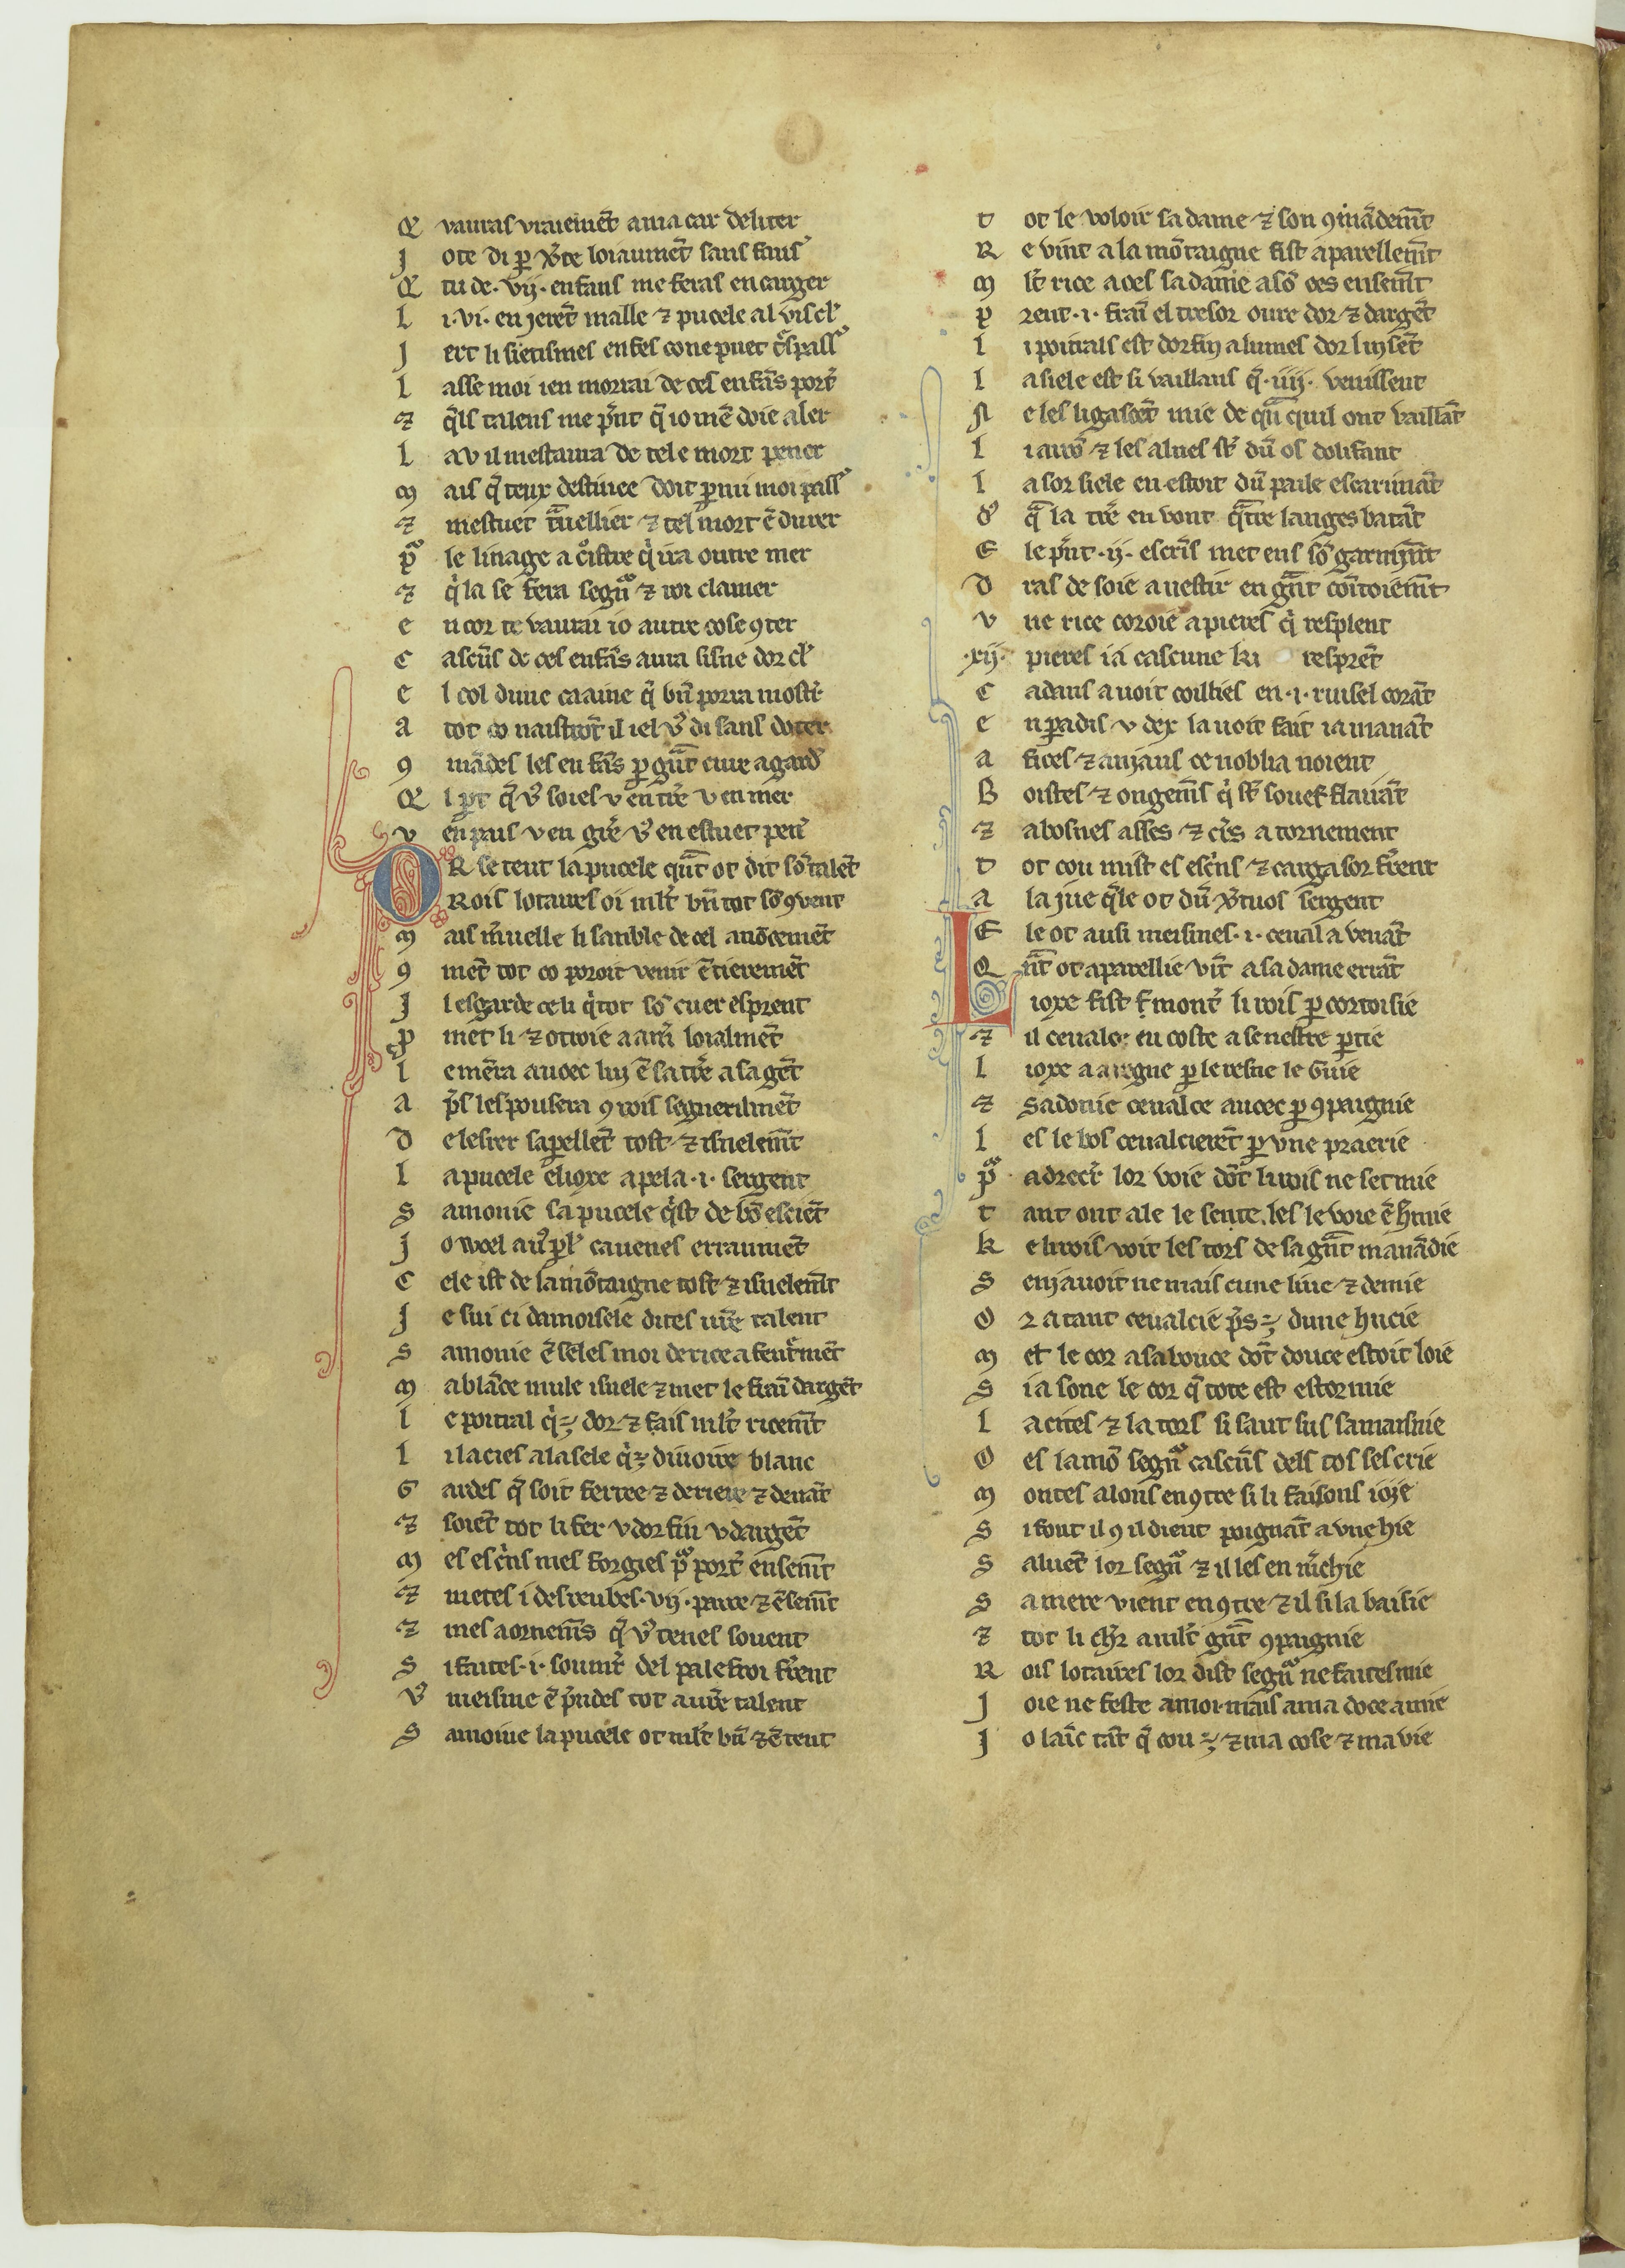 Q̃ vauras vraiemẽt a ma car deliter
J ote di ꝑ v̾te loiaumẽt sans faus̾
Q̃ tu de .vij. enfans me feras encarger
L i .vi. en ierẽt malle ⁊ pucele al vis cl̾
J ert li sietismes enfes cone puet t̾spass̾
L asse moi ien morrai de ces enfãs port̾
⁊ q̃ls talens me p̾nt q̃ io mẽ doie aler
L av il mestaura de tele mort pener
M ais q̃ teux destinee doit ꝑ mi moi pass̾
⁊ mestuet t̾uellier ⁊ tel mort ẽdurer
pͦ le linage acͦistre qͥ ira outre mer
⁊ qͥ la se fera segnͦ ⁊ roi clamer
E ncor te vaurai io autre cose ꝯter
C ascũs de ces enfãs aura sisne dor cl̾
E l col dune caaine q̃ bñ porra mostr̾
A tot co naistrõt il iel v̾ di sans doter
ꝯ mãdes les enfãs ꝑ gͣnt cure a gard̾
Q̃ l part q̃ v̾ soies v en tr̾e v en mer
V en pais v en gr̾e v̾ en estuet pen̾
OR se teut la pucele qͣnt ot dit sõ talẽt
Rois lotaires oi ml̾t bñ tot sõ ꝯvent
M ais m̾uelle li sanble de cel anõcemẽt
ꝯ mẽt tot co poroit venir ẽtieremẽt
J l esgarde celi qͥ tot sõ cuer esprent
P met li ⁊ otroie a am̾ loialmẽt
L emẽra auoec lui ẽ sa tr̾e a sa gẽt
A p̾s lespousera ꝯ rois segnerilmẽt
D elesrer sapellẽt tost ⁊ isnelemt̃
L a pucele elioxe apela .i. sergent
S amonie sa pucele qͥ st̃ de bõ esciẽt
J o woel au̾ pl̾ cauenes erraumẽt
C ele ist de la mõtaigne tost ⁊ isnelemt̃
J e sui ci damoisele dites vr̃e talent
S amonie ẽseles moi de rice afeut̾mẽt
M a blãce mule isnele ⁊ met le frai darg̃et
L e poitral qͥ ÷ dor ⁊ fais ml̾t ricemt̃
L i laciés a la sele qͥ ÷ diuoire blanc
G ardes q̃ soit ferree ⁊ deriere ⁊ deuãt
⁊ soiẽt tot li fer v dor fin v dargẽt
M es escͥns mes forgies pͦ port̾ ensemt̃
⁊ metes i des reubes .vij. paire ⁊ ẽsemt̃
⁊ mes aornemt̃s q̃ v̾ tenes souent
S i faites .i. soumr̾ del palefroi fr̾ent
V̾ meisme ẽ p̾ndes tot a vr̃e talent
S amonie la pucele ot ml̾t bñ ⁊ ẽtent
T ot le voloir sa dame ⁊ son ꝯmãdemt̃
R e vint a la mõtaigne fist aparellemt̃
M l̾t rice a oes sa dame a sõ oes ensemt̃
P rent .i. frai el tresor oure dor ⁊ dargẽt
L i poitrals est dor fin a lumes dor luisẽt
L a siele est si vaillans q̃ .iiij. venissent
N e les ligascẽt mie de qͣn quil ont vaillãt
L i arcõ ⁊ les alues st̾ dũ os dolifant
L a sorsiele en estoit dũ paile escarimãt
D̾ qͣ la tr̾e en vont qͣtre langes batãt
E le p̾nt .ij. escrĩs met ens sõ garnimt̃
D ras de soie a vestir en gͣnt cõtoiemt̃
V ne rice coroie a pieres qͥ resplent
.xij. pieres i a cascune ki resprẽt
C adans auoit coillies en .i. ruisel corãt
E n ꝑadis v dex lauoit fait ia manãt
A fices ⁊ aniaus ce noblia noient
B oistes ⁊ ongemt̃s qͥ st̾ souef flairãt
⁊ abosnes asses ⁊ cr̾s a tornement
T ot cou mist es escͥns ⁊ carga sor fr̾ent
A la jue q̃le ot dũ v̾tuos sergent
E le ot ausi meismes .i. ceual a venãt
Q ͣnt ot aparellie vĩt a sa dame errãt
Lioxe fist fͥ mont̾ li rois ꝑ cortoisie
⁊ il ceualce en coste a senestre ꝑtie
L ioxe a a regne ꝑ le resne le guie
⁊ Sadonie ceualce auoec ꝑ ꝯpaignie
L es le bos ceualcierẽt ꝑ vne praerie
Pͦ adrect̾ lor voie dõt li rois ne set mie
T ant ont ale le sente les le voie ẽhmie
K e li rois voit les tors de sa gͣnt manãdie
S en i auoit ne mais cune liue ⁊ demie
O r a tant ceualcie p̾s ÷ dune hucie
M et le cor a sa bouce dõt douce estoit loie
S i a sone le cor q̃ tote est estormie
L a cites ⁊ la tors si saut sus sa maisnie
O es la mõ segnͦ cascũs dels tos sescrie
M ontes alons en ꝯtre si li faisons ioie
S i font il ꝯ il dient poignãt a vne hie
S aluẽt lor segnͦ ⁊ il les en m̾chie
S a mere vient en ꝯtre ⁊ il si la baisie
⁊ tot li ch̾r a ml̾t gͣnt ꝯpaignie
R ois lotaires lor dist segnͦ ne faites mie
J oie ne feste a moi mais a ma doce amie
J o laĩc tãt q̃ cou ÷ ⁊ ma cose ⁊ ma vie